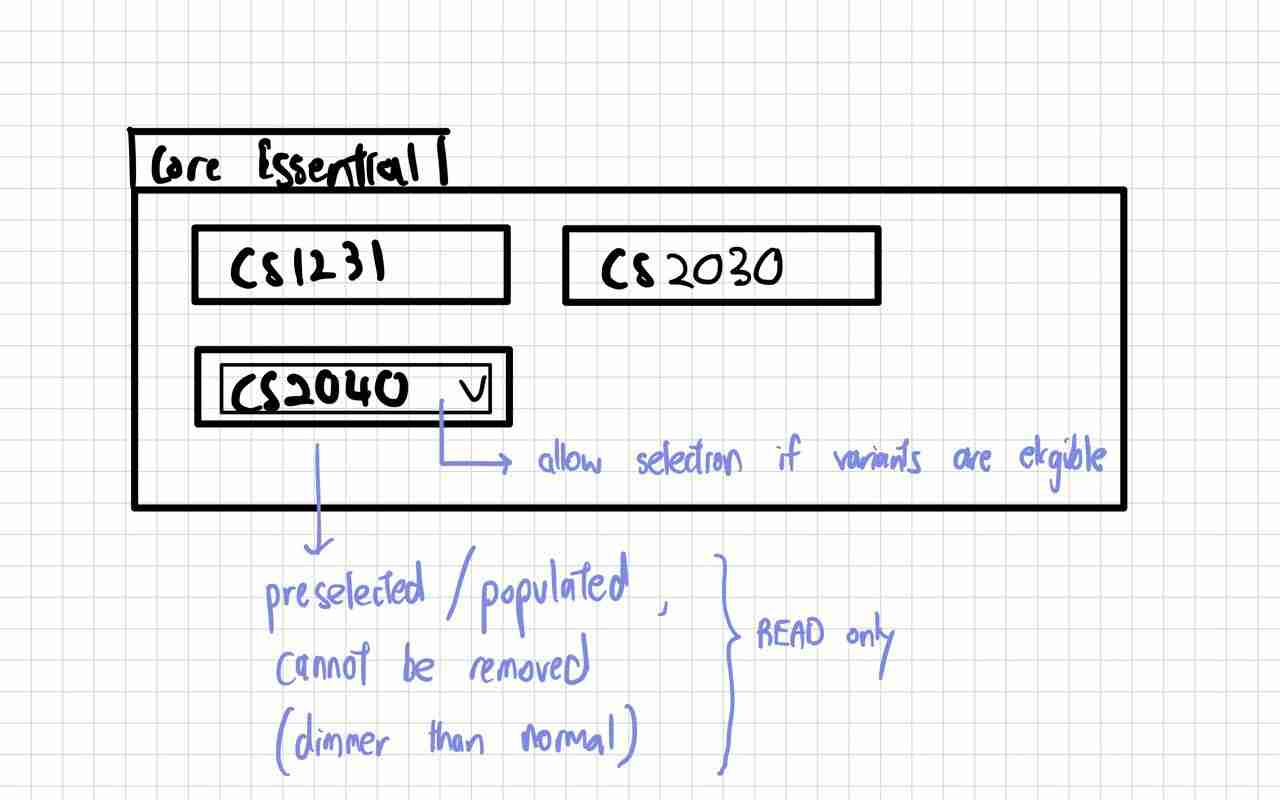 Core Essential
CS1231
CS2030
CS2040
allow selection if variants are eligible
preselected / populated,
cannot be removed
(dimmer than normal)
READ only